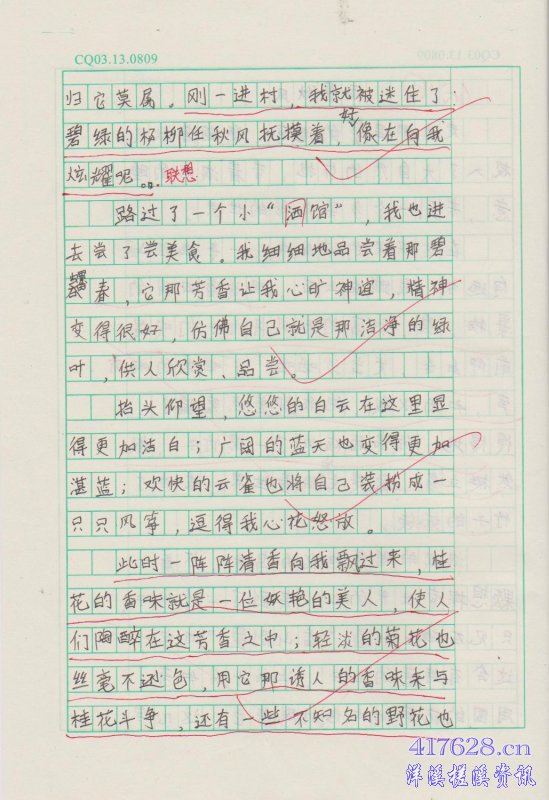 CQ03.13.0809
归它莫属。刚一进村，我就被迷住了
好
碧绿的杨柳任秋风抚摸着，像在向我
炫耀呢。。联想
路过了一个小“酒馆”，我也进
去尝了尝美食。我细细地品尝着那碧
春，它那芳香让我心旷神宜，精神
变得很好，仿佛自己就是那洁净的绿
叶，供人欣赏、品尝。
抬头仰望，悠悠的白云在这里显
得更加洁白；广阔的蓝天也变得更加
湛蓝；欢快的云雀也将自己装捞成一
只只风筝，逗得我心花怒放。
此时一阵阵清香向我飘过来，桂
花的香味就是一位妖艳的美人，使人
们陶醉在这芳香之中；轻淡的菊花也
丝毫不逊色，用它那诱人的香味来与
桂花斗争，还有一些不知名的野花也
417628.cn
洋溪槎溪资讯